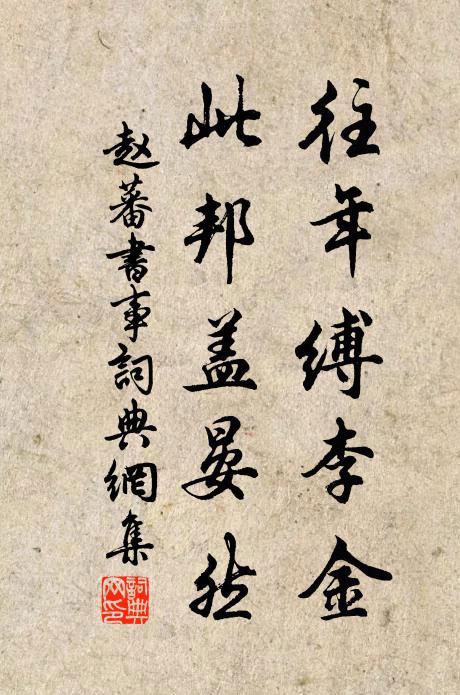 往年缚李金
此邦盖晏然
赵蕃書事詞典網集
詞典
网印